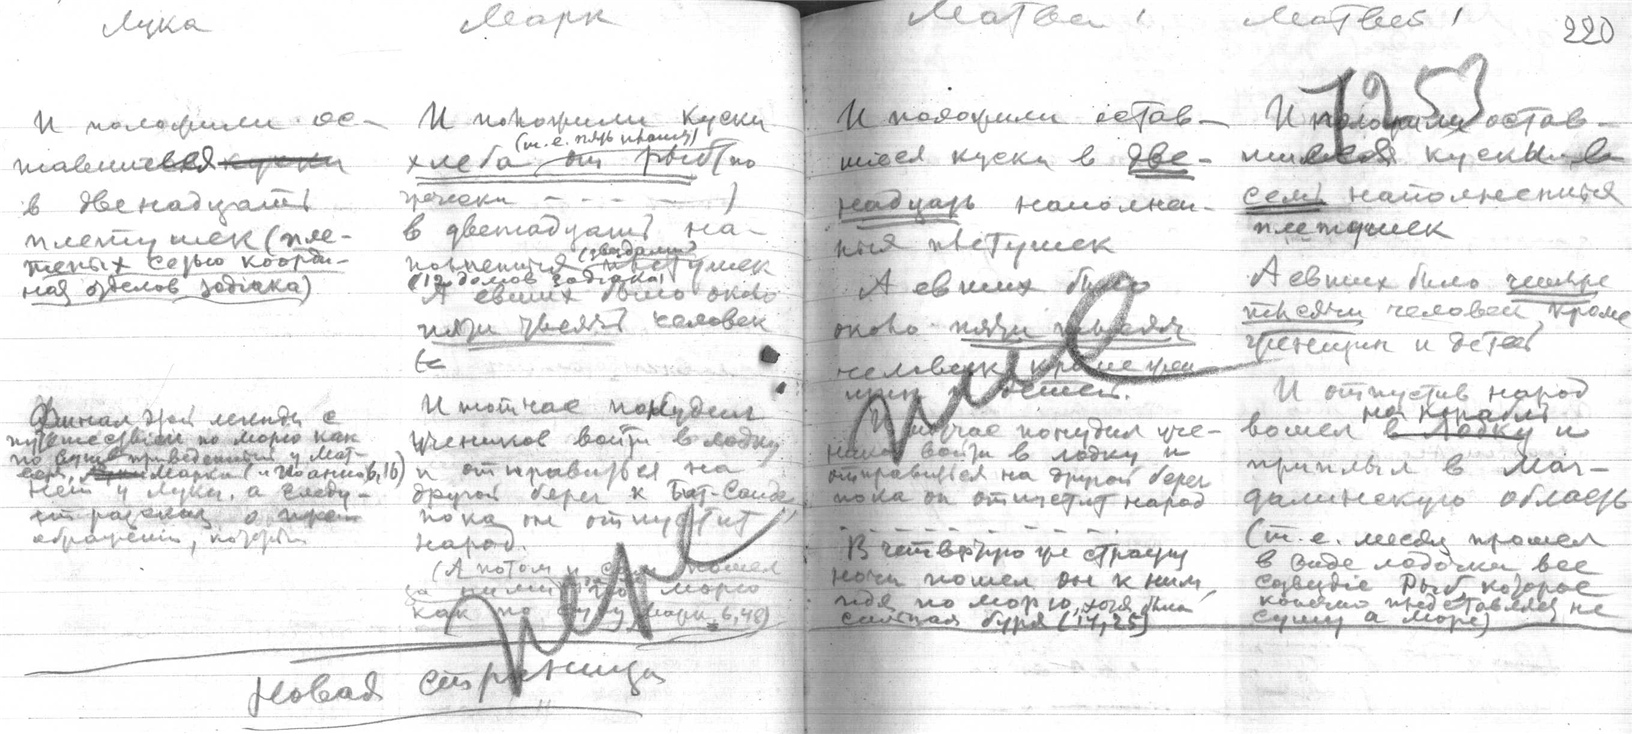 Лука
И положили ос-
тавшиеся куски
в двенадцать
плетушек (пле-
теных сетью коорди-
нат отделов зодиака)
Финал этой легенды с
путешествием по морю как
по суше приведенный у Мат-
вея, Марка (и Иоанна 6,16)
нет у Луки, а следу-
ет рассказ о пре-
ображении, который
Марк
И положили куски
(т.е. пять планид)
хлеба от рыб (по
гречески - - - - - )
в двенадцать на-
(звездами)
полненных плетушек
(12 домов зодиака)
А евших было около
пяти тысяч человек
И тотчас понудил
учеников войти в лодку
и отправиться на
другой берег к Бет-Саиде
пока он отпустит
народ.
(А потом и сам пошел
за ними по морю
как по суху Марк. 6,48)
Новая страница
Матвей 1
И положили остав-
шиеся куски в две-
надцать наполнен-
ных плетушек
А евших было
около пяти тысяч
человек кроме жен-
щин и детей.
И тотчас понудил уче-
ников войти в лодку и
отправиться на другой берег
пока он отпустит народ
- - - - - - -
В четвертую же стражу
ночи пошел он к ним,
идя по морю, хотя была
сильная буря (14,25)
Матвей 1
220
1953
И положили остав-
шихся кусков в
семь наполненных
плетушек
А евших было четыре
тысячи человек кроме
женщин и детей
И отпустив народ
на корабль
вошел в лодку и
приплыл в Маг-
далинскую область
(т.е. месяц прошел
в виде лодочки все
созвездие Рыб которое
конечно представлялось не
сушу а море)